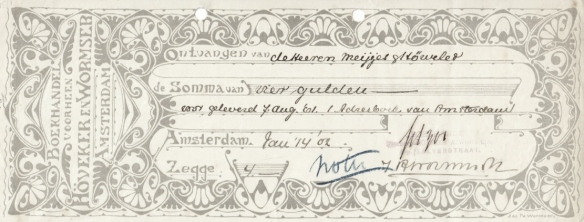 BOEKHANDEL
VOORHEEN
HÖVEKER EN WORMSER
AMSTERDAM
Ontvangen van de Heeren Meijjes & Höweler
de Somma van vier gulden
voor geleverd 7 Aug. 01. 1 Adresboek van Amsterdam
Amsterdam. Jan '14 '02
Zegge f 4